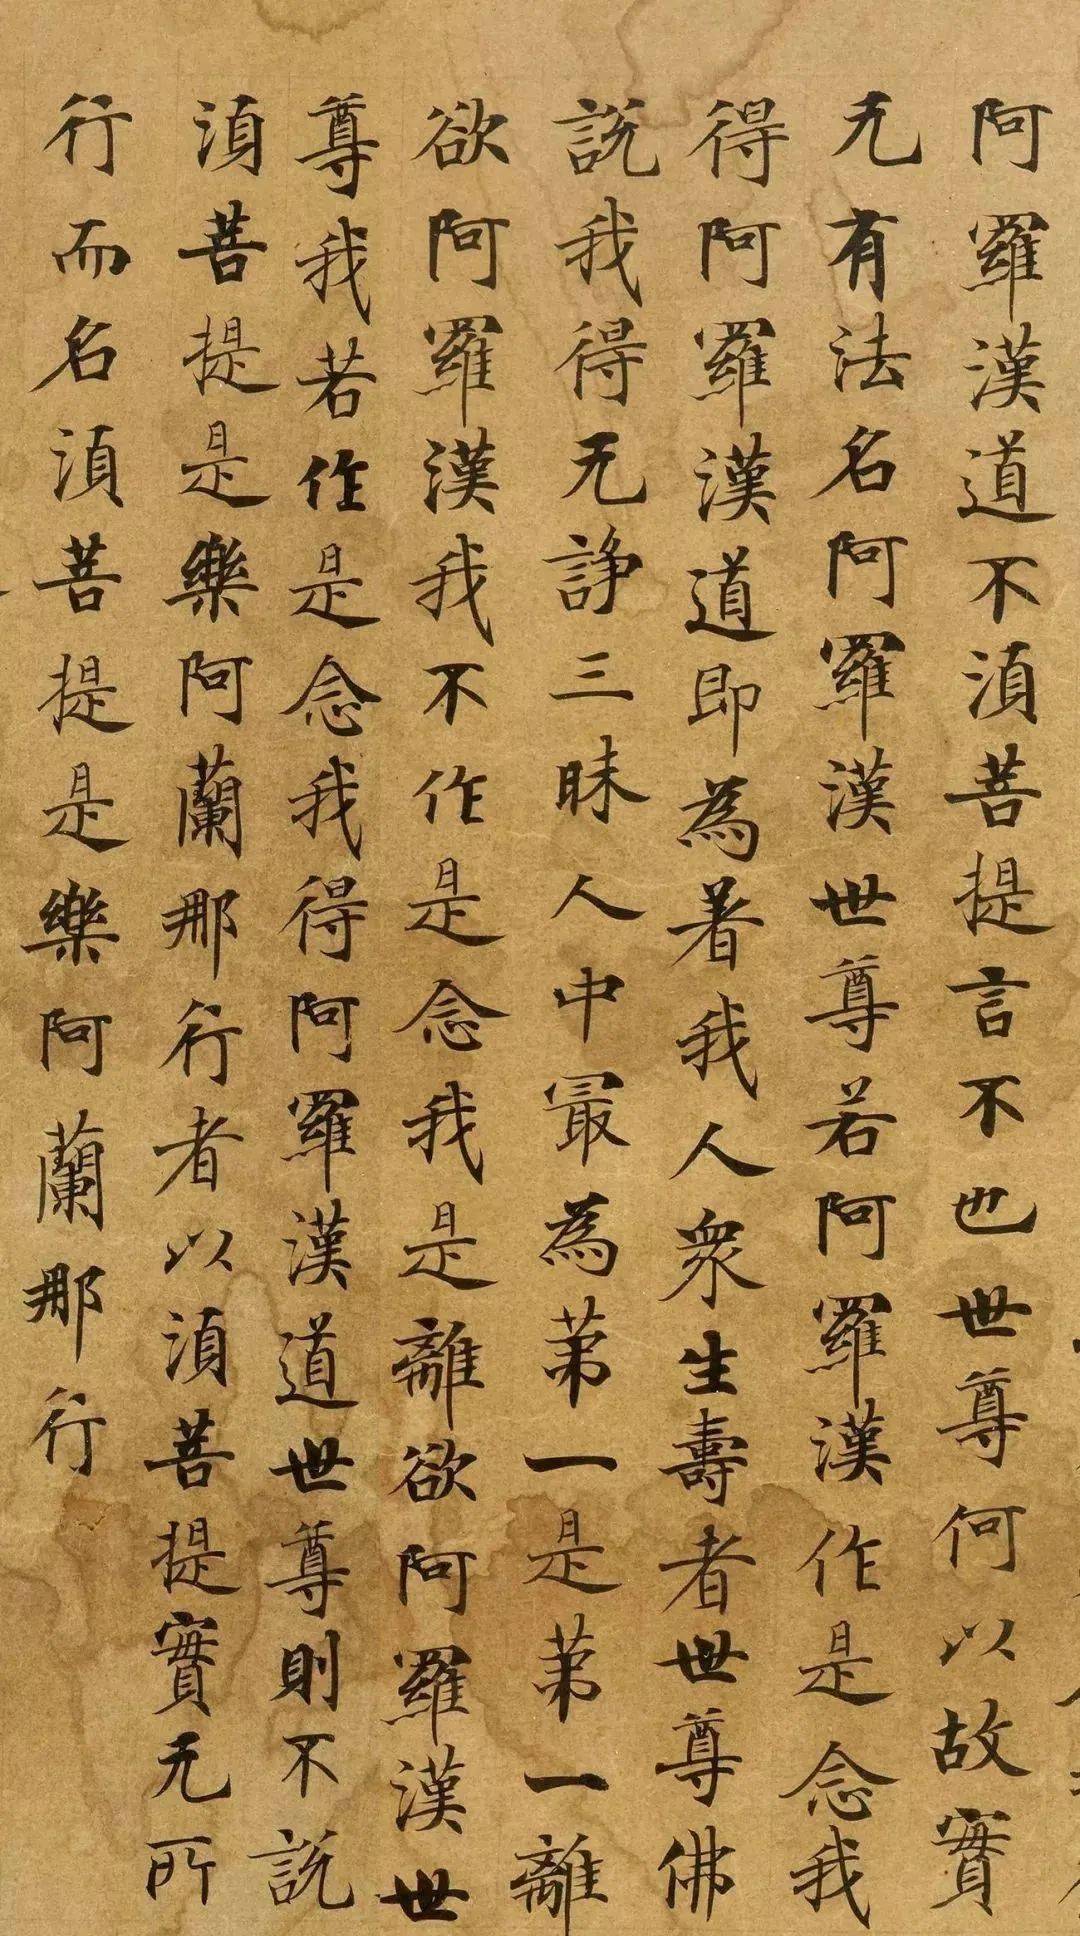 阿羅漢道不湏菩提言不也世尊何以故實
无有法名阿羅漢世尊若阿羅漢作是念我
得阿羅漢道即為著我人衆生壽者世尊佛
説我得无諍三昧人中最為苐一是苐一離
欲阿羅漢我不作是念我是離欲阿羅漢世
尊我若作是念我得阿羅漢道世尊則不説
湏菩提是樂阿蘭那行者以湏菩提實无所
行而名湏菩提是樂阿蘭那行